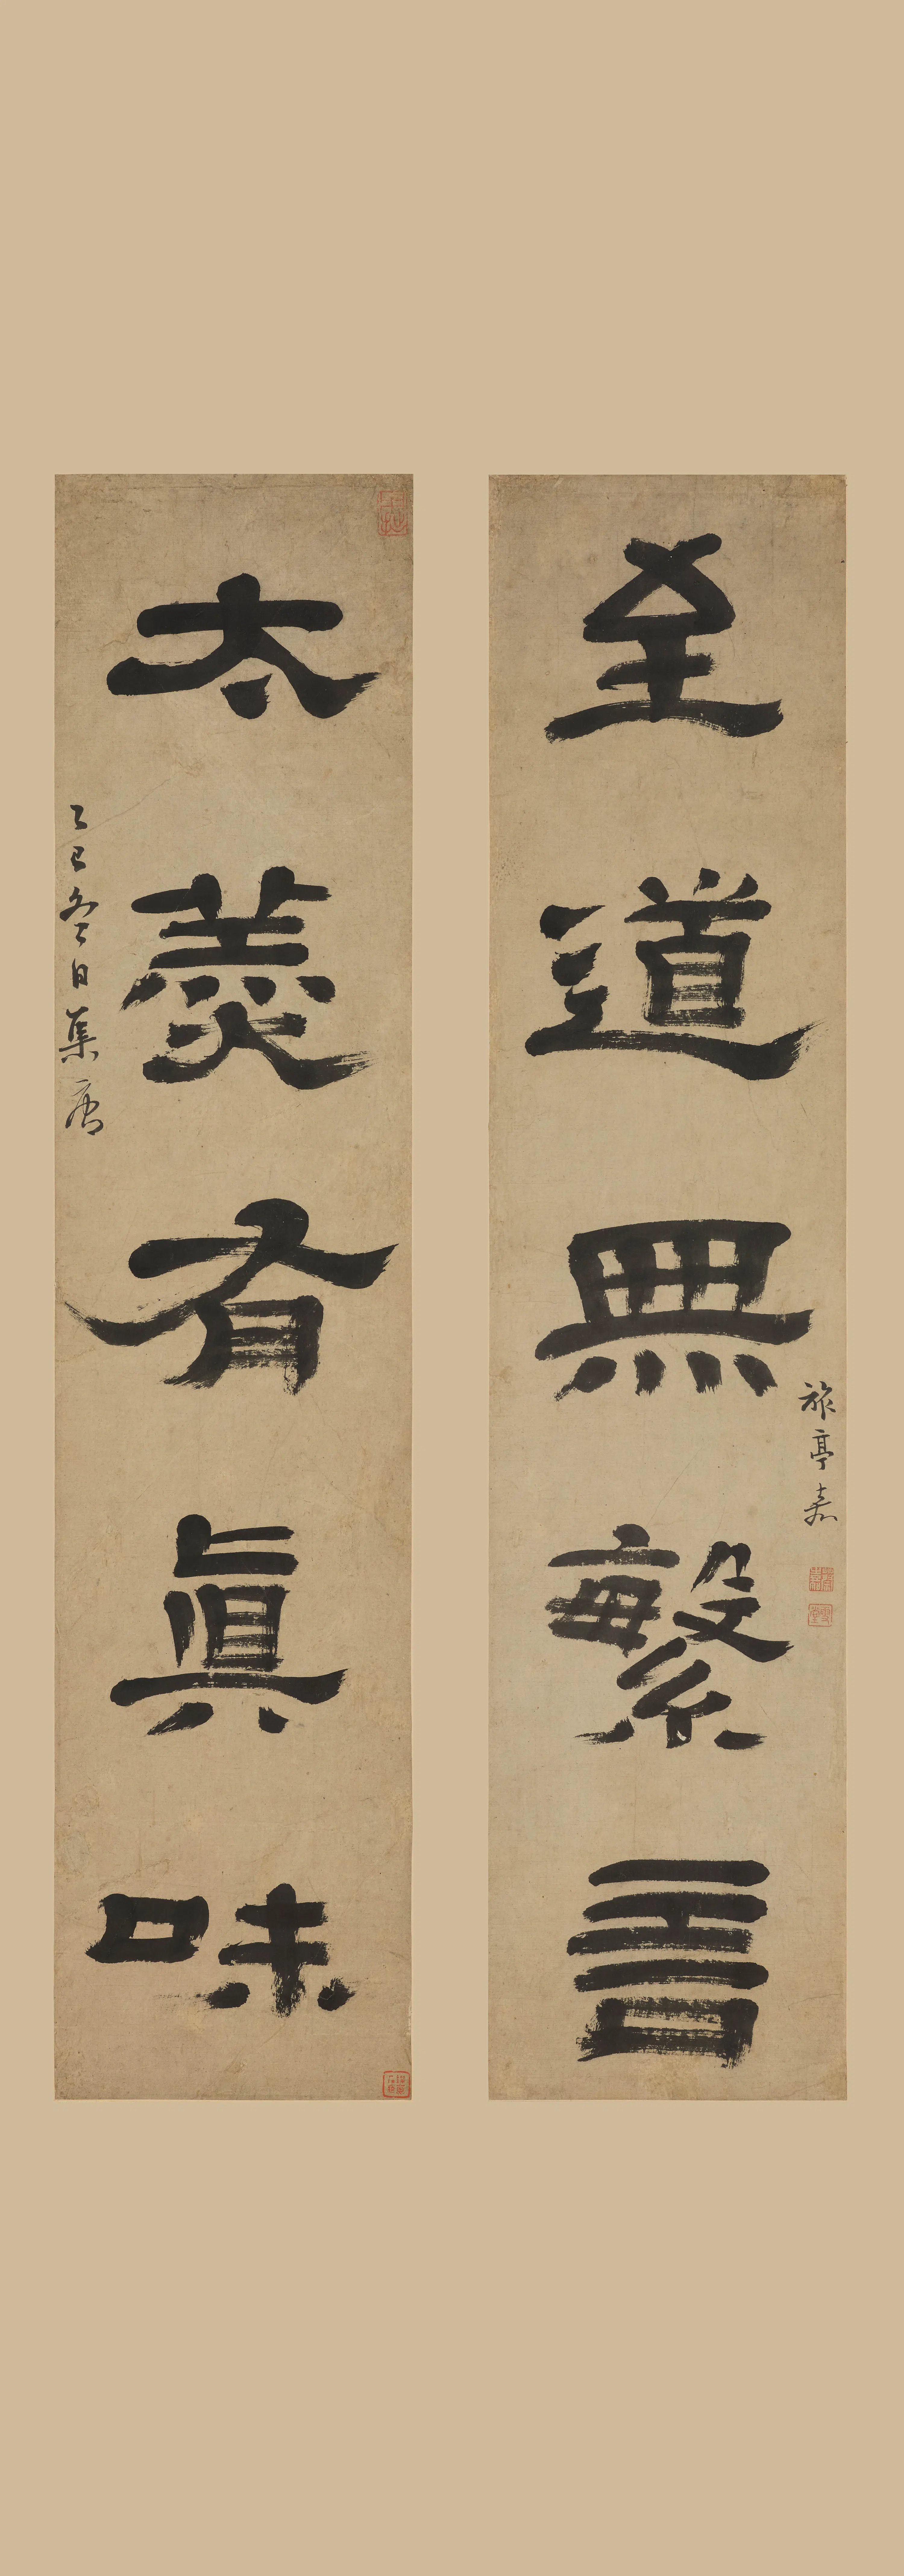 至道無繁言
旅亭嘉
太羹有眞味
乙巳冬日集唐